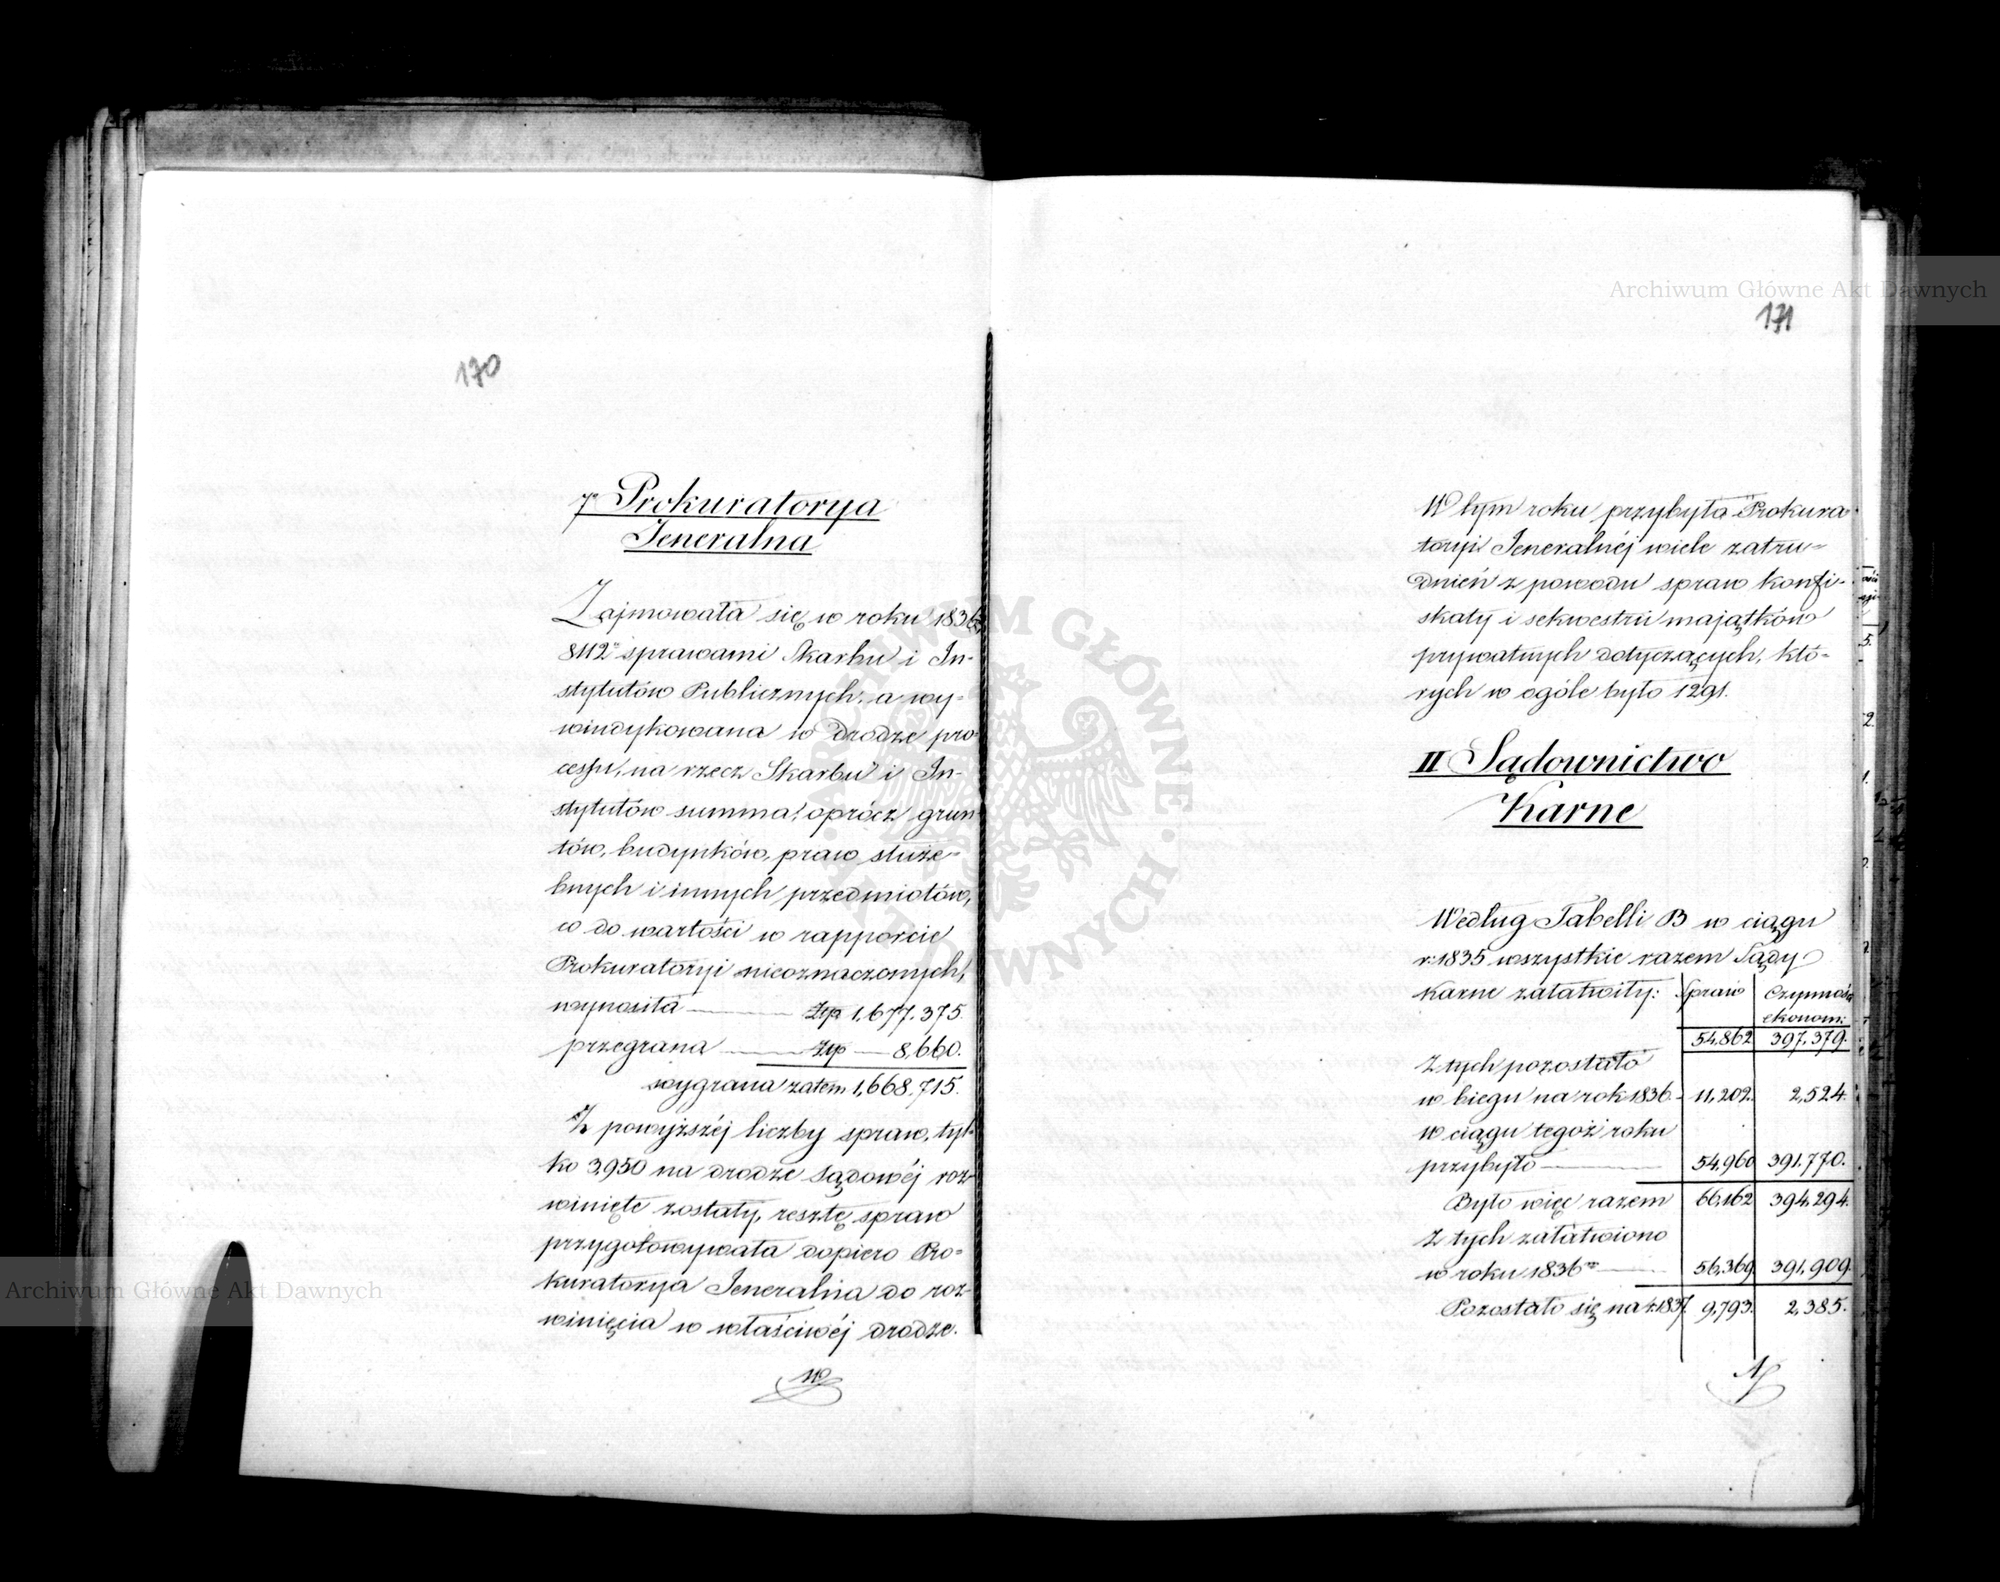 170
7º Prokuratorya
Jeneralna
Zajmowała się w roku 1836
8112 sprawami Skarbu i In-
stytutów Publicznych, a wy-
windykowana w drodze pro-
cessu, na rzecz Skarbu i In-
stytutów summa, oprócz grun
tów, budynków, praw służe-
bnych i innych przedmiotów,
co do wartości w rapporcie
Prokuratoryi nieoznaczonych,
wynosiła — Złp 1,677,375.
przegrana — Złp — 8,660.
wygrana zatem 1,668,715.
Z powyższéj liczby spraw, tyl-
ko 3,950 na drodze Sądowéj roz-
winięte zostały, resztę spraw
przygotowywała dopiero Pro-
kuratorya Jeneralna do roz-
winięcia w właściwéj drodze.
W
171
W tym roku przybyło Prokura
toryi Jeneralnéj wiele zatru-
dnień z powodu spraw konfi-
skaty i sekwestru majątków
prywatnych dotyczących, któ-
rych w ogóle było 1291.
II Sądownictwo
Karne
Według Tabelli B w ciągu
r: 1835 wszystkie razem Sądy
karne załatwiły: Spraw Czynnoś
ekonom:
54,862 397,379.
Z tych pozostało
w biegu na rok 1836 - 11,202. 2,524.
W ciągu tegoż roku
przybyło — 54,960 391,770.
Było więc razem 66,162 394,294.
Z tych załatwiono
w roku 1836 — 56,369. 391,909.
Pozostało się na r. 1837. 9,793. 2,385.
Archiwum Główne Akt Dawnych
Archiwum Główne Akt Dawnych
ARCHIWUM GŁÓWNE AKT DAWNYCH